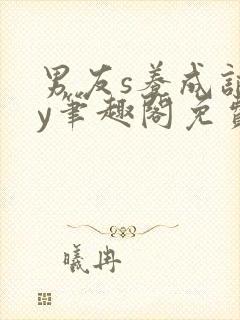 男友s养成记
y笔趣阁免费
曦冉